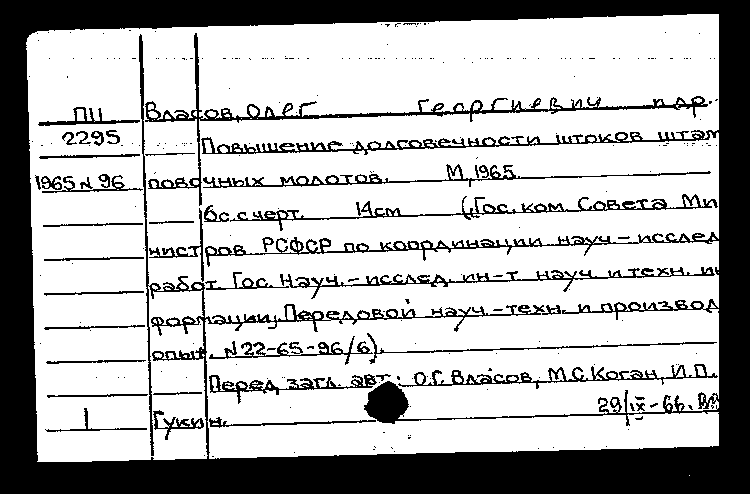 ПII Власов, Олег Георгиевич и др.
2295 Повышение долговечности штоков штам
1965 N 96 повочных молотов. М, 1965.
6с. с черт. 14см (Гос. ком. Совета Ми
нистров РСФСР по координации науч.-исслед
работ. Гос. науч.-исслед. ин-т науч. и техн. ин
формации. Передовой науч.-техн. и производ
опыт. N22-65-96/6).
Перед загл. авт.: О.Г. Власов, М.С. Коган, И.П.
1 Гукин. 29/IX-66.